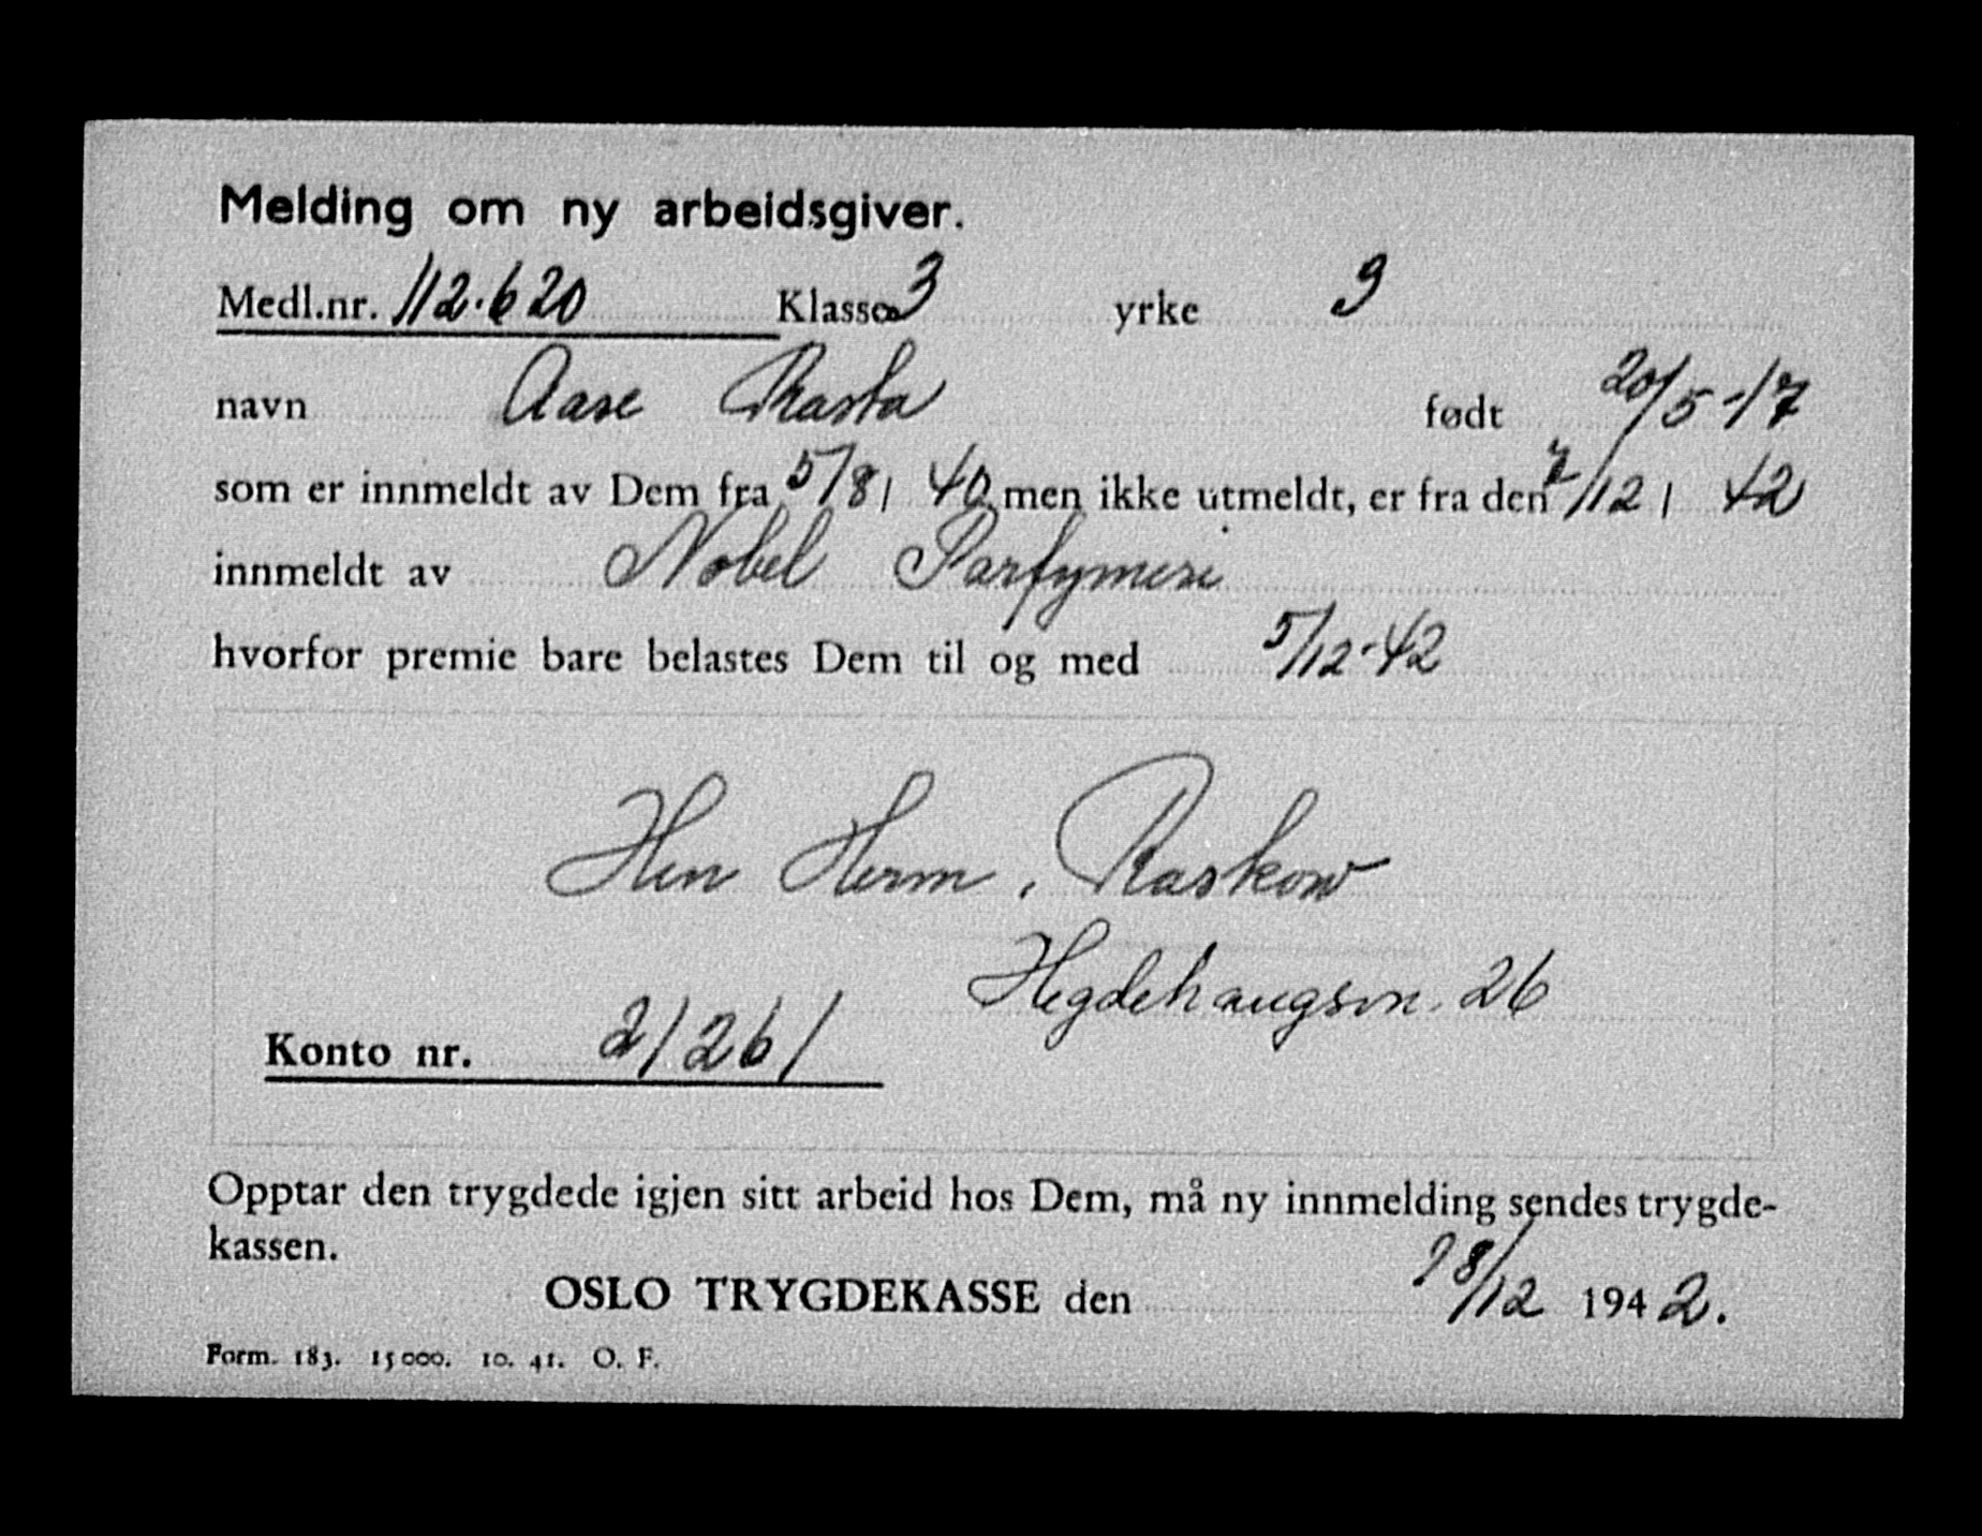 Melding om ny arbeidsgiver.
Medl.nr. 112.620 Klasse 3 yrke 9
navn Aase Rasta født 20/5-17
som er innmeldt av Dem fra 5/8/ 40 men ikke utmeldt, er fra den 7/12/ 42
innmeldt av Nobel Parfymeri
hvorfor premie bare belastes Dem til og med 5/12-42
Herr Herm. Raskow
Hegdehaugsvn. 26
Konto nr. 21261
Opptar den trygdede igjen sitt arbeid hos Dem, må ny innmelding sendes trygde-
kassen.
OSLO TRYGDEKASSE den 18/12 1942.
Form. 183. 15000. 10. 41. O. F.